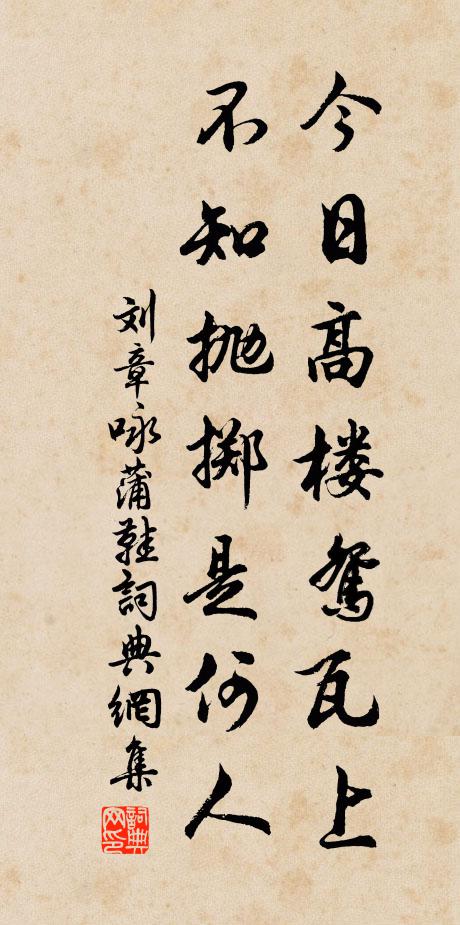 今日高楼鸳瓦上
不知抛掷是何人
刘章咏蒲鞋詞典網集
詞典网印